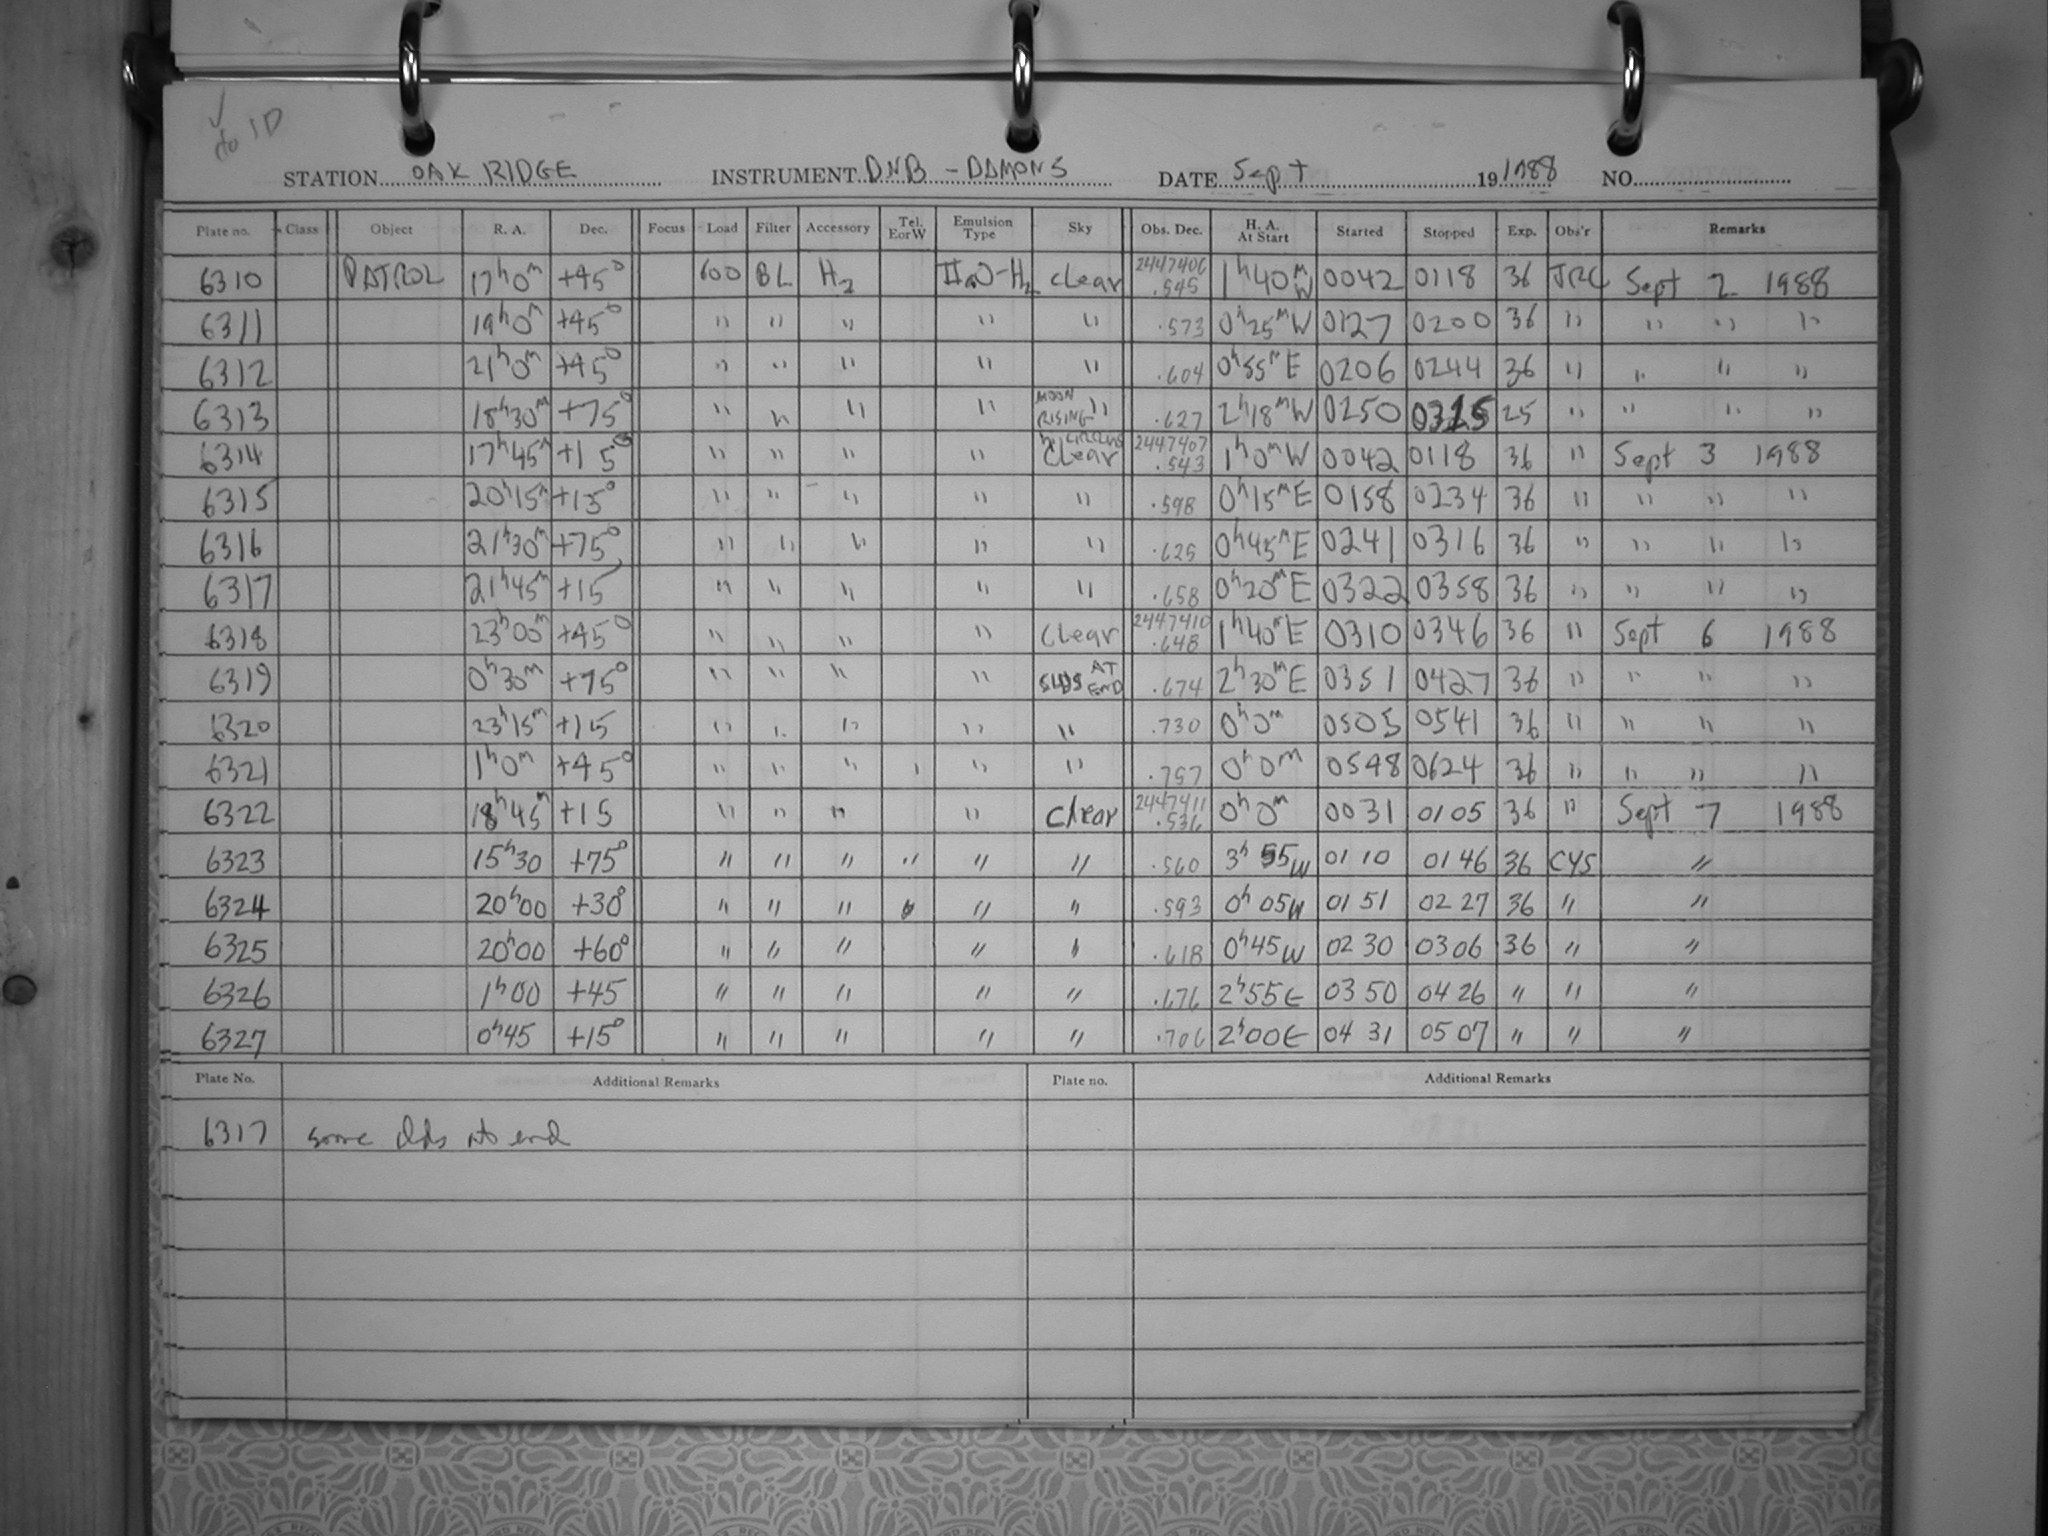 ✓
do ID
STATION OAK RIDGE INSTRUMENT DNB - DAMONS DATE Sept 19 1988 NO.
Plate no. Class Object R. A. Dec. Focus Load Filter Accessory Tel. E or W Emulsion Type Sky Obs. Dec. H. A. At Start Started Stopped Exp. Obs'r Remarks
6310 PATROL 17h0m +45° 600 BL H2 IIaO-H2 clear 2447406 .545 1h40m W 0042 0118 36 JRC Sept 2 1988
6311 19h0m +45° " " " " " .573 0h25m W 0127 0200 36 " " " "
6312 21h0m +45° " " " " " .604 0h55m E 0206 0244 36 " " " "
6313 18h30m +75° " " " " MOON RISING " .627 2h18m W 0250 0315 25 " " " "
6314 17h45m +15° " " " " clear 2447407 .543 1h0m W 0042 0118 36 " Sept 3 1988
6315 20h15m +15° " " " " " .598 0h15m E 0158 0234 36 " " " "
6316 21h30m +75° " " " " " .625 0h45m E 0241 0316 36 " " " "
6317 21h45m +15 " " " " " .658 0h20m E 0322 0358 36 " " " "
6318 23h00m +45° " " " " Clear 2447410 .648 1h40m E 0310 0346 36 " Sept 6 1988
6319 0h30m +75° " " " " AT END .674 2h30m E 0351 0427 36 " " " "
6320 23h15m +15 " " " " " .730 0h0m 0505 0541 36 " " " "
6321 1h0m +45° " " " " " .757 0h0m 0548 0624 36 " " " "
6322 18h45m +15 " " " " clear 2447411 .536 0h0m 0031 0105 36 " Sept 7 1988
6323 15h30 +75° " " " " " " .560 3h55W 0110 0146 36 CYS "
6324 20h00 +30° " " " " " .593 0h05W 0151 0227 36 " "
6325 20h00 +60° " " " " " .618 0h45W 0230 0306 36 " "
6326 1h00 +45 " " " " " .676 2h55E 0350 0426 " " "
6327 0h45 +15° " " " " " .706 2h00E 0431 0507 " " "
Plate No. Additional Remarks Plate no. Additional Remarks
6317 some clds at end